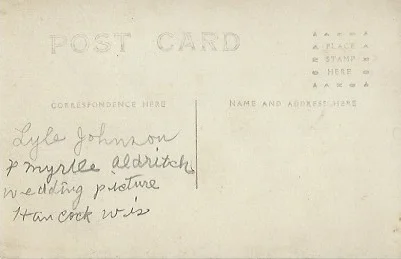 POST CARD
PLACE
STAMP
HERE
CORRESPONDENCE HERE
NAME AND ADDRESS HERE
Lyle Johnson
& myrtle aldritch
wedding picture
Hancock wis